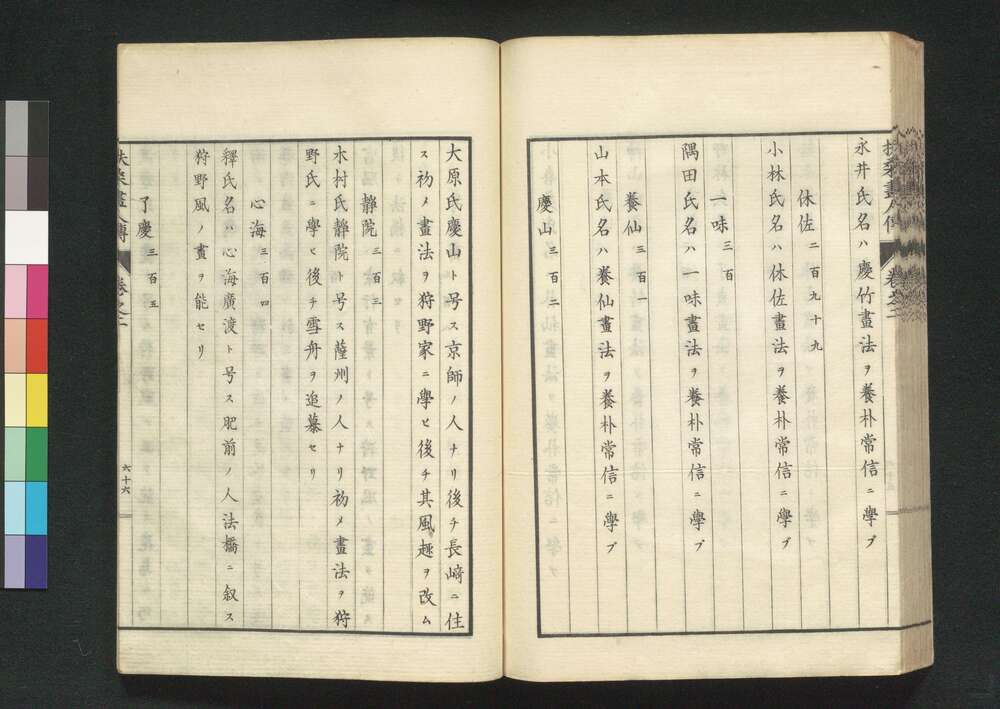 永井氏名ハ慶竹畫法ヲ養朴常信ニ學ブ
休佐 二百九十九
小林氏名ハ休佐畫法ヲ養朴常信ニ學ブ
一味 三百
隅田氏名ハ一味畫法ヲ養朴常信ニ學ブ
養仙 三百一
山本氏名ハ養仙畫法ヲ養朴常信ニ學ブ
慶山 三百二
大原氏慶山ト号ス京師ノ人ナリ後チ長崎ニ住
ス初メ畫法ヲ狩野家ニ學ヒ後チ其風趣ヲ改ム
靜院 三百三
木村氏靜院ト号ス薩州ノ人ナリ初メ畫法ヲ狩
野氏ニ學ヒ後チ雪舟ヲ追慕セリ
心海 三百四
釋氏名ハ心海廣渡ト号ス肥前ノ人法橋ニ叙ス
狩野風ノ畫ヲ能セリ
了慶 三百五
扶桑畫人傳 卷之二
六十六